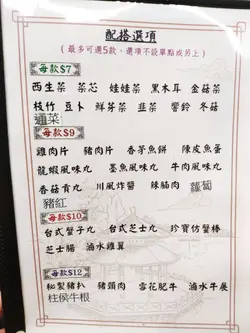 配搭選項
(最多可選5款、選項不設單點或另上)
每款$7
西生菜 菜芯 娃娃菜 黑木耳 金菇菜
枝竹 豆卜 鮮芽菜 韭菜 響鈴 冬菇
通菜
每款$9
雞肉片 豬肉片 香茅魚餅 陳皮魚蛋
龍蝦風味丸 墨魚風味丸 牛肉風味丸
香菇貢丸 川風炸醬 辣腩肉 蘿蔔
豬紅
每款$10
台式蟹子丸 台式芝士丸 珍寶仿蟹棒
芝士腸 滷水雞翼
每款$12
秘製豬扒 豬頸肉 雪花肥牛 滷水牛展
柱侯牛根